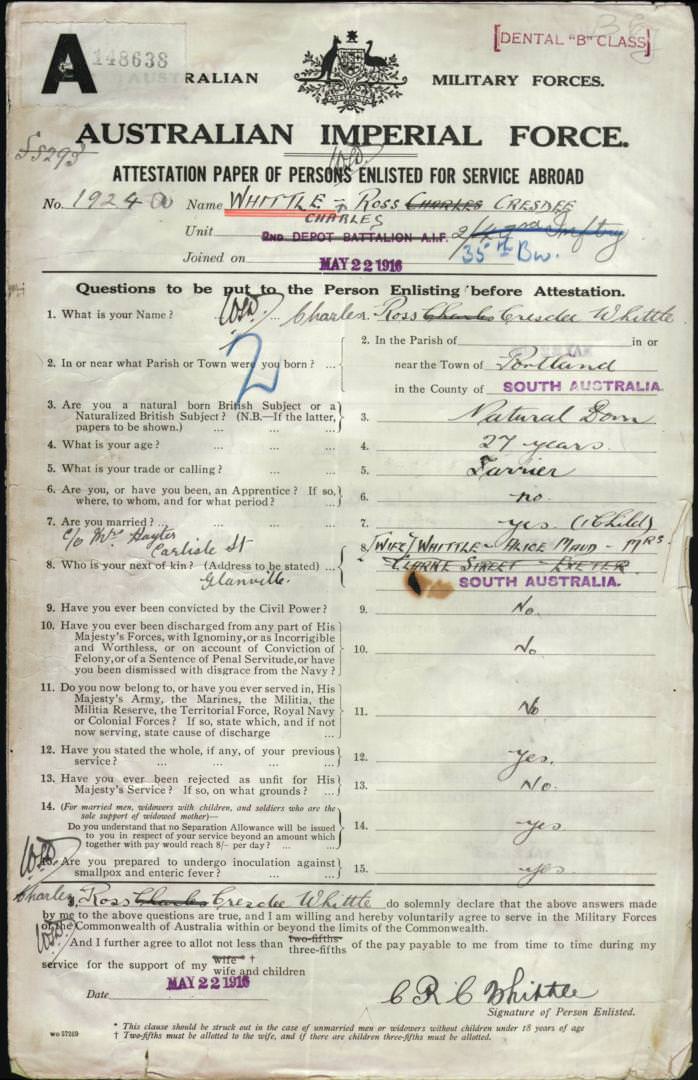 [DENTAL "B" CLASS]
A 148638
RALIAN MILITARY FORCES.
AUSTRALIAN IMPERIAL FORCE.
ATTESTATION PAPER OF PERSONS ENLISTED FOR SERVICE ABROAD
No. 1924 Name WHITTLE - ROSS CHARLES CRESDEE
CHARLES
Unit 2ND DEPOT BATTALION A.I.F.
35th Bn.
Joined on MAY 22 1916
Questions to be put to the Person Enlisting before Attestation.
1. What is your Name? ... 1. Charles Ross Charles Cresdee Whittle
2. In or near what Parish or Town were you born? ... 2. In the Parish of in or
near the Town of Portland
in the County of SOUTH AUSTRALIA.
2
3. Are you a natural born British Subject or a
Naturalized British Subject? (N.B.—If the latter,
papers to be shown.) ... ... ... 3. Natural Born
4. What is your age? ... ... ... 4. 27 years.
5. What is your trade or calling? ... ... 5. Farrier
6. Are you, or have you been, an Apprentice? If so,
where, to whom, and for what period? ... 6. no.
7. Are you married? ... ... ... 7. yes (1 Child)
c/o Mrs Hayter
Carlisle St
Glanville.
8. Who is your next of kin? (Address to be stated) ... 8. (WIFE) WHITTLE - ALICE MAUD - MRS
CLARKE STREET - EXETER
SOUTH AUSTRALIA.
9. Have you ever been convicted by the Civil Power? 9. No.
10. Have you ever been discharged from any part of His
Majesty's Forces, with Ignominy, or as Incorrigible
and Worthless, or on account of Conviction of
Felony, or of a Sentence of Penal Servitude, or have
you been dismissed with disgrace from the Navy? 10. No.
11. Do you now belong to, or have you ever served in, His
Majesty's Army, the Marines, the Militia, the
Militia Reserve, the Territorial Force, Royal Navy
or Colonial Forces? If so, state which, and if not
now serving, state cause of discharge ... 11. No
12. Have you stated the whole, if any, of your previous
service? ... ... ... ... 12. yes.
13. Have you ever been rejected as unfit for His
Majesty's Service? If so, on what grounds? ... 13. No.
14. (For married men, widowers with children, and soldiers who are the
sole support of widowed mother)—
Do you understand that no Separation Allowance will be issued
to you in respect of your service beyond an amount which
together with pay would reach 8/- per day? ... ... 14. yes
15. Are you prepared to undergo inoculation against
smallpox and enteric fever? ... ... 15. yes
Charles
I, Ross Charles Cresdee Whittle do solemnly declare that the above answers made
by me to the above questions are true, and I am willing and hereby voluntarily agree to serve in the Military Forces
of the Commonwealth of Australia within or beyond the limits of the Commonwealth.
*And I further agree to allot not less than two-fifths three-fifths of the pay payable to me from time to time during my
service for the support of my wife † wife and children
Date MAY 22 1916
C R C Whittle
Signature of Person Enlisted.
* This clause should be struck out in the case of unmarried men or widowers without children under 18 years of age
† Two-fifths must be allotted to the wife, and if there are children three-fifths must be allotted.